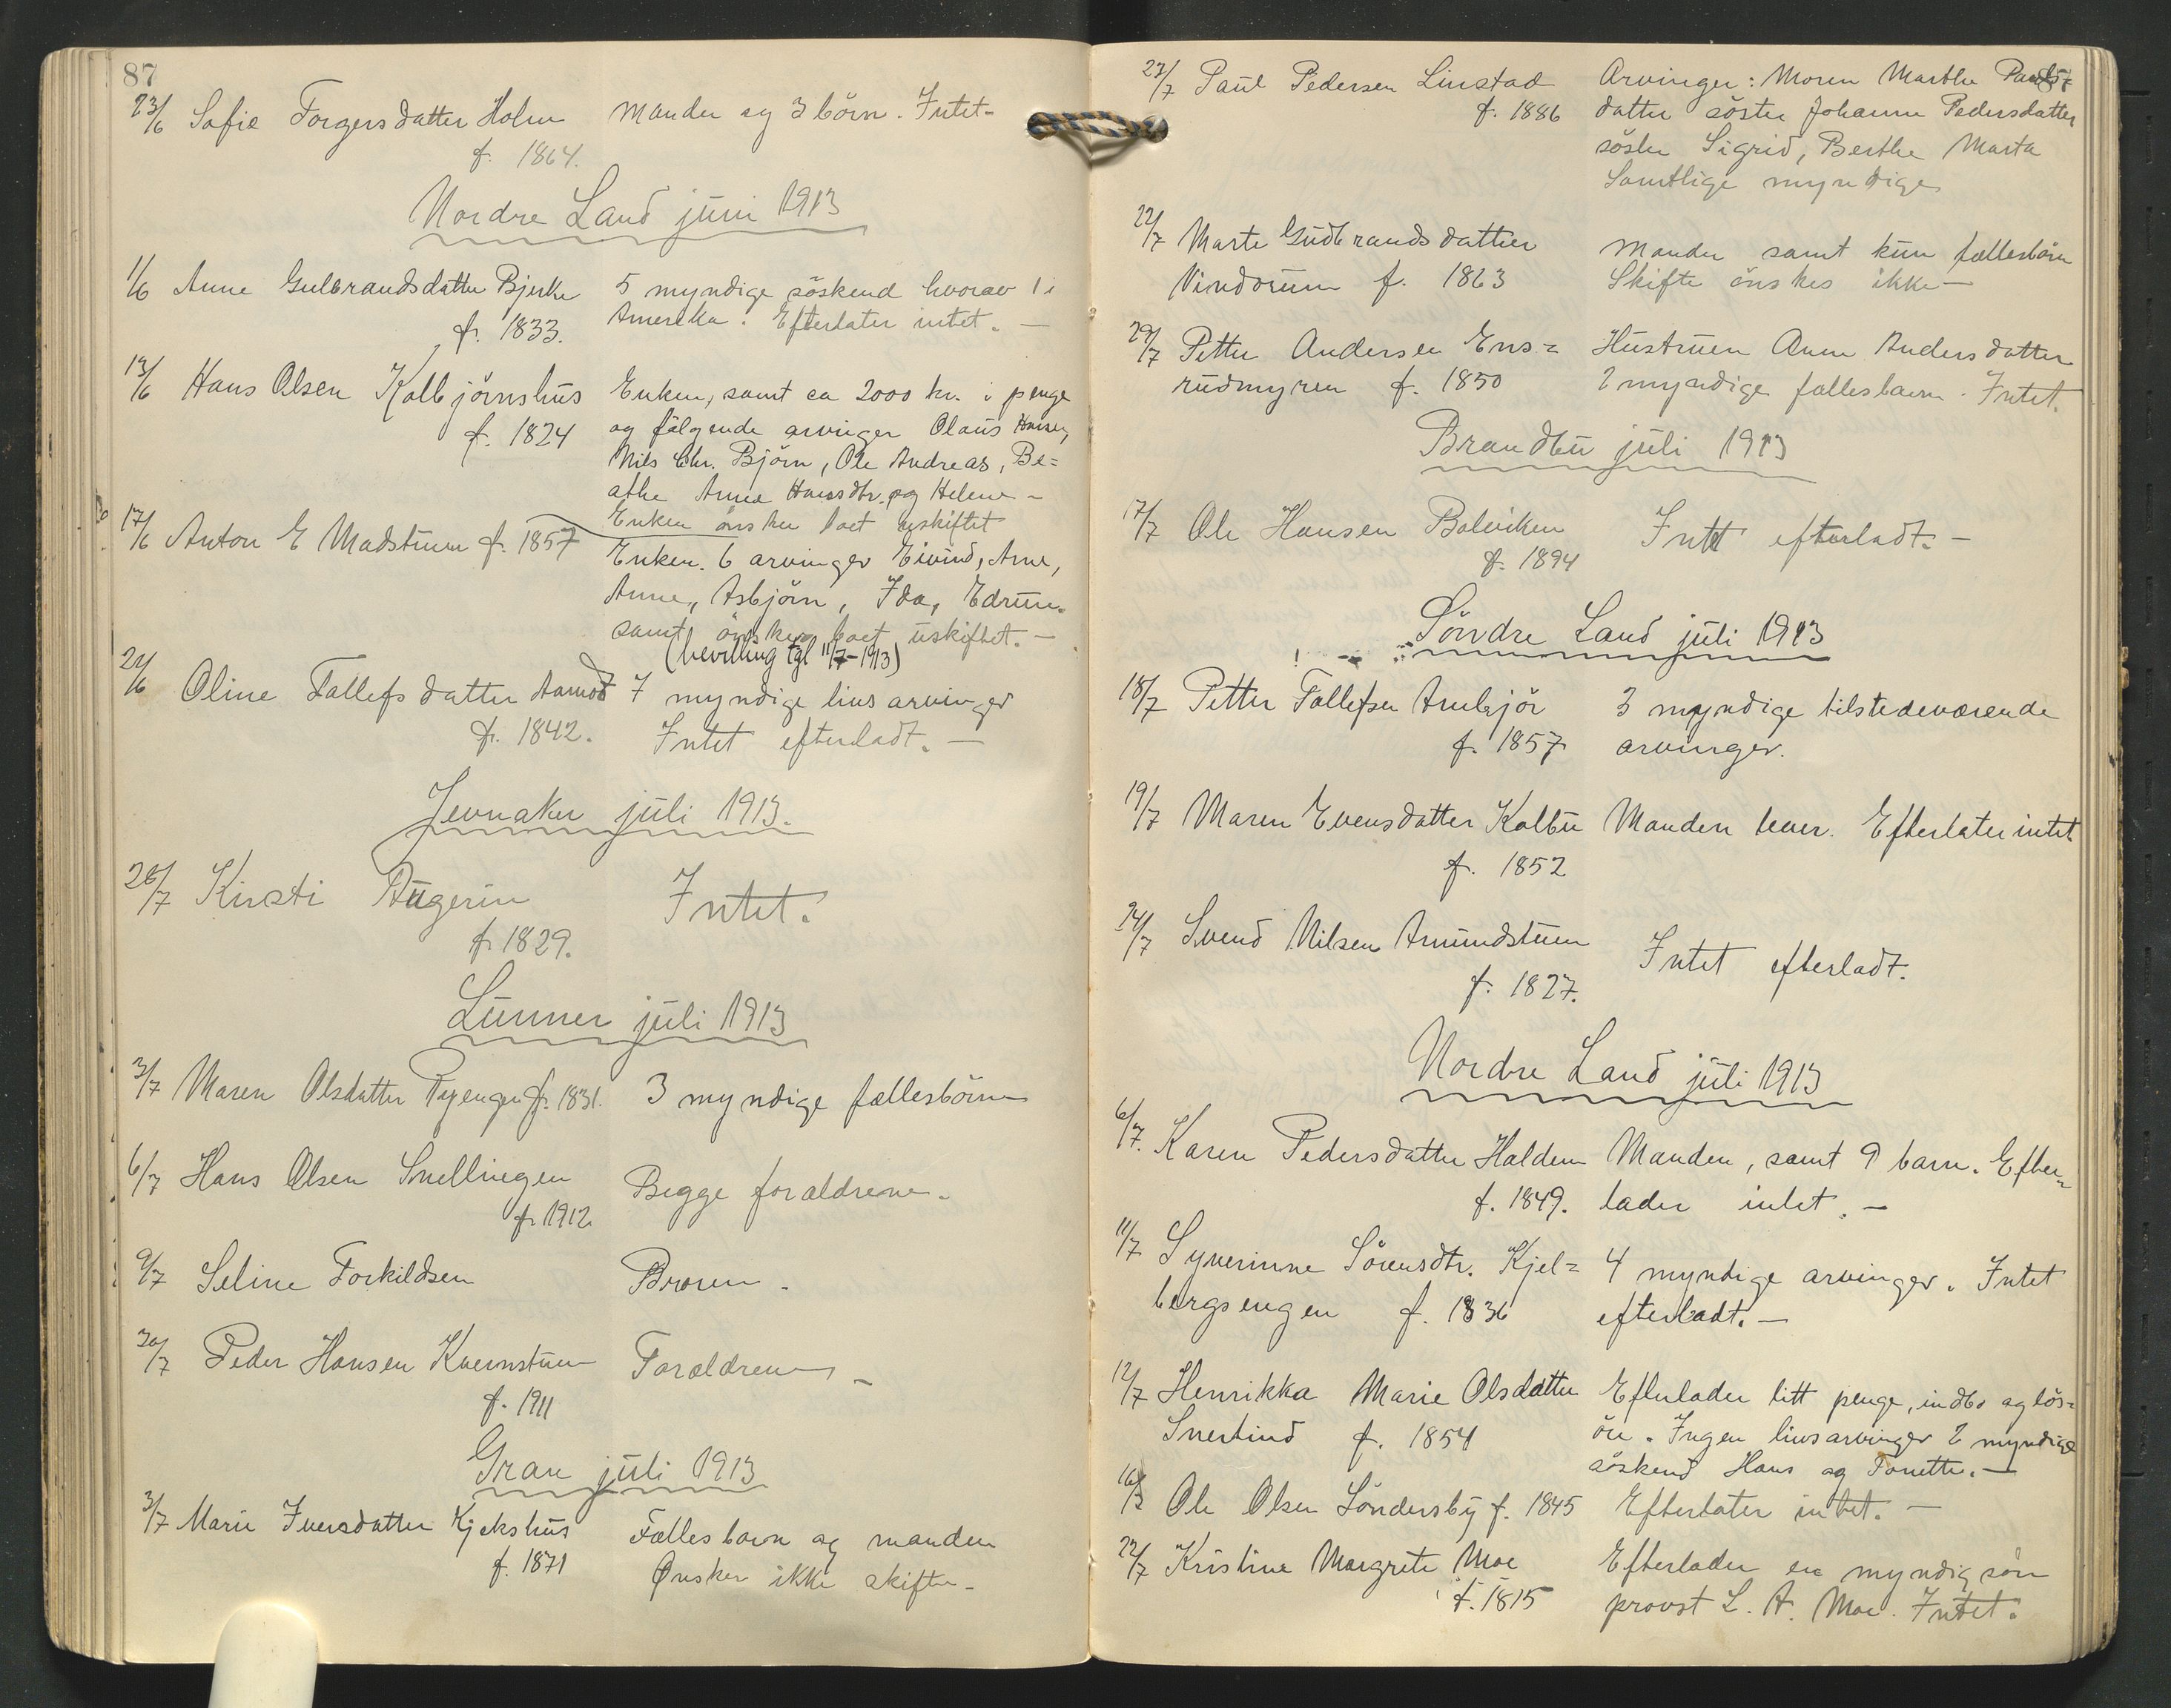 87
23/6 Sofie Torgersdatter Holm Manden og 3 börn. Intet-
f. 1864.
Nordre Land juni 1913
1/6 Anne Gulbrandsdatter Bjerke 5 myndige söskend hvorav 1 i
f. 1833. Amerika. Efterlater intet. —
13/6 Hans Olsen Kolbjörnshus Enken, samt ca 2000 kr. i penge
f. 1824 og fölgende arvinger Olaus Hansen,
Nils Chr. Björn, Ole Andreas, Be=
athe Anne Hansdtr. og Helene -
Enken önsker boet uskiftet
17/6 Anton E Madstuen f. 1857 Enken. 6 arvinger Eivind, Arne,
Anne, Asbjörn, Ida, Edrun.
samt önsker boet uskiftet. —
(bevilling tgl 11/7-1913)
21/6 Oline Tollefsdatter Aamot 7 myndige livsarvinger
f. 1842. Intet efterladt. —
Jevnaker juli 1913.
28/7 Kirsti Augerin Intet.
f. 1829.
Lunner juli 1913
3/7 Maren Olsdatter Ryengen f. 1831. 3 myndige fællesbörn
6/7 Hans Olsen Snellingen Begge forældrene.
f. 1912
9/7 Seline Torkildsen Broren -
30/7 Peder Hansen Kvernstuen Forældrene -
f. 1911
Gran juli 1913
3/7 Marie Iversdatter Kjekshus Fælles barn og manden
f. 1871 Ønsker ikke skifte-
23/7 Paul Pedersen Linstad Arvinger: Moren Marthe Pauls=
f. 1886 datter söster Johanne Pedersdatter
söster Sigrid, Berthe Marta
Samtlige myndige
22/7 Marte Gudbrandsdatter Manden samt kun fællesbörn
Vindorum f. 1863 Skifte önskes ikke —
29/7 Petter Andersen Ens= Hustruen Anne Andersdatter
rudmyren f. 1850 2 myndige fællesbarn. Intet.
Brandbu juli 1913
17/7 Ole Hansen Bolviken Intet efterladt. —
f. 1894
Söndre Land juli 1913
18/7 Petter Tollefsen Arnbjör 3 myndige tilstedeværende
f. 1857 arvinger.
19/7 Maren Evensdatter Kolbu Manden lever. Efterlater intet
f. 1852
24/7 Svend Nilsen Amundstuen Intet efterladt.
f. 1827.
Nordre Land juli 1913
6/7. Karen Pedersdatter Halden Manden, samt 9 barn. Efter=
f. 1849. lader intet. —
11/7 Syverinne Sörensdtr. Kjel= 4 myndige arvinger. Intet
bergsengen f. 1836 efterladt. —
12/7 Henrikka Marie Olsdatter Efterlader litt penge, indbo og lös=
Snertind f. 1854 öre. Ingen livsarvinger 2 myndige
söskend Hans og Tonette. —
16/7 Ole Olsen Söndersby f. 1845 Efterlater intet. —
22/7 Kristine Margrete Moe Efterlader en myndig sön
f. 1815 provst L. A. Moe. Intet.